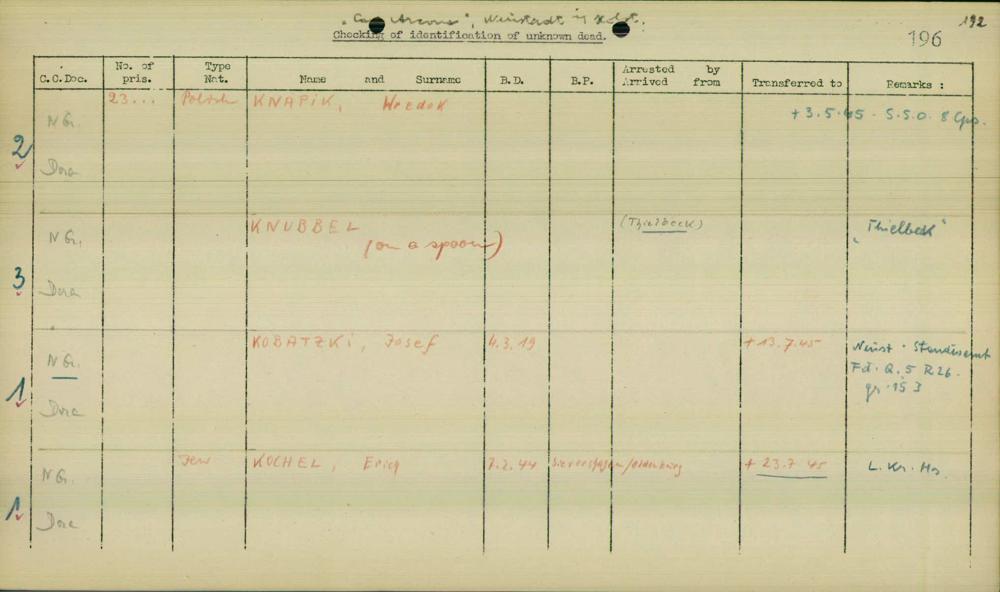 "Cap Arcona", Neustadt i/ Holst.
192
Checking of identification of unknown dead.
196
C.C.Doc. No. of pris. Type Nat. Name and Surname B.D. B.P. Arrested by Arrived from Transferred to Remarks :
N Gr. 23... Polish KNAPIK, + 3.5.45 - S.S.O. 8 Cps.
2
Dora
N Gr. KNUBBEL (Thielbeck) "Thielbeck"
(on a spoon)
3
Dora
N Gr. KOBATZKI, Josef 4.3.19 + 13.7.45 Neust. Standesamt
Fd. Q.5 R26.
gr. 153
1
Dora
N Gr. Jew KOCHEL, Erich 7.2.44 + 23.7 45 L. Kr. Hs.
1
Dora